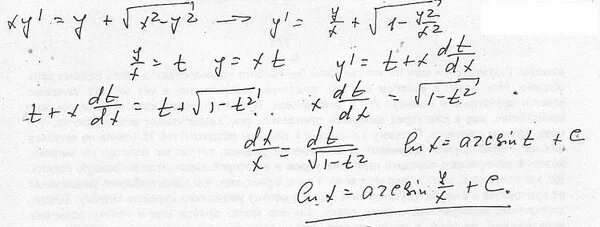 xy' = y + √(x²-y²) → y' = y/x + √(1 - y²/x²)
y/x = t y = xt y' = t + x dt/dx
t + x dt/dx = t + √(1-t²). x dt/dx = √(1-t²).
dx/x = dt/√(1-t²) ln x = arcsin t + C
ln x = arcsin y/x + C.